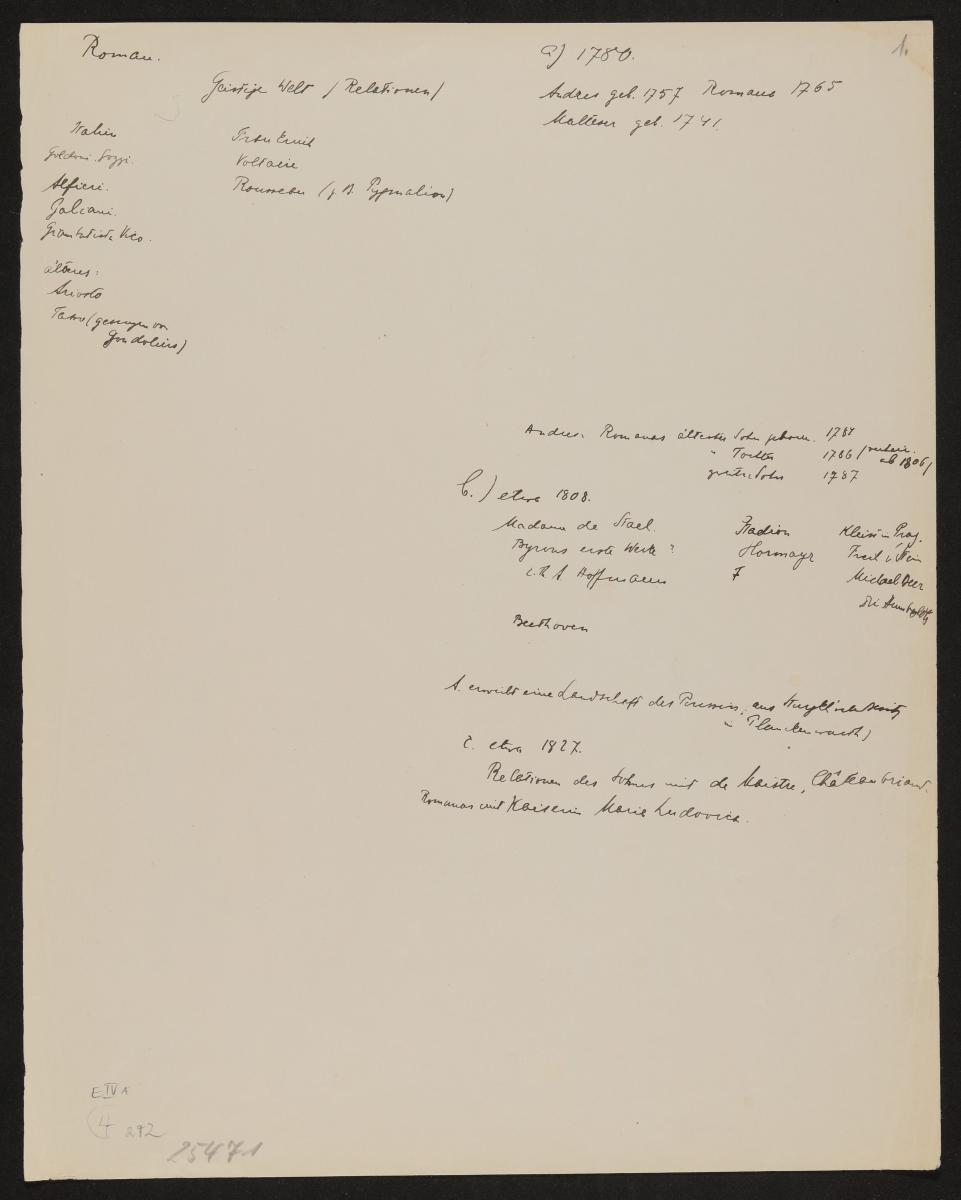 1.
Roman.
a) 1780.
Geistige Welt / Relationen /
Andres geb. 1757 Romana 1765
Malteser geb. 1741.
Italien
Goldoni. Gozzi.
Alfieri.
Galiani.
Giambatista Vico.
älteres:
Ariosto
Tasso (gesungen von
Gondolieri)
Frankreich
Voltaire
Rousseau (z B. Pygmalion)
Andres-Romanas ältester Sohn geboren. 1781
" Tochter 1786 /
ab 1806 /
zweiter Sohn 1787
b.) etwa 1808.
Madame de Stael.
Byrons erste Werke ?
E. T. A. Hoffmann
Beethoven
Stadion
Hormayr
F
Kleist in Prag.
Frech v. Stein
Michael Beer
die Humboldts
A. erwirbt eine Landschaft des Poussin, aus
in Planckenwarth)
c. etwa 1827.
Relationen des Sohnes mit de Maistre, Châteaubriand.
Romanas mit Kaiserin Maria Ludovica.
E IV A
4 292
25471